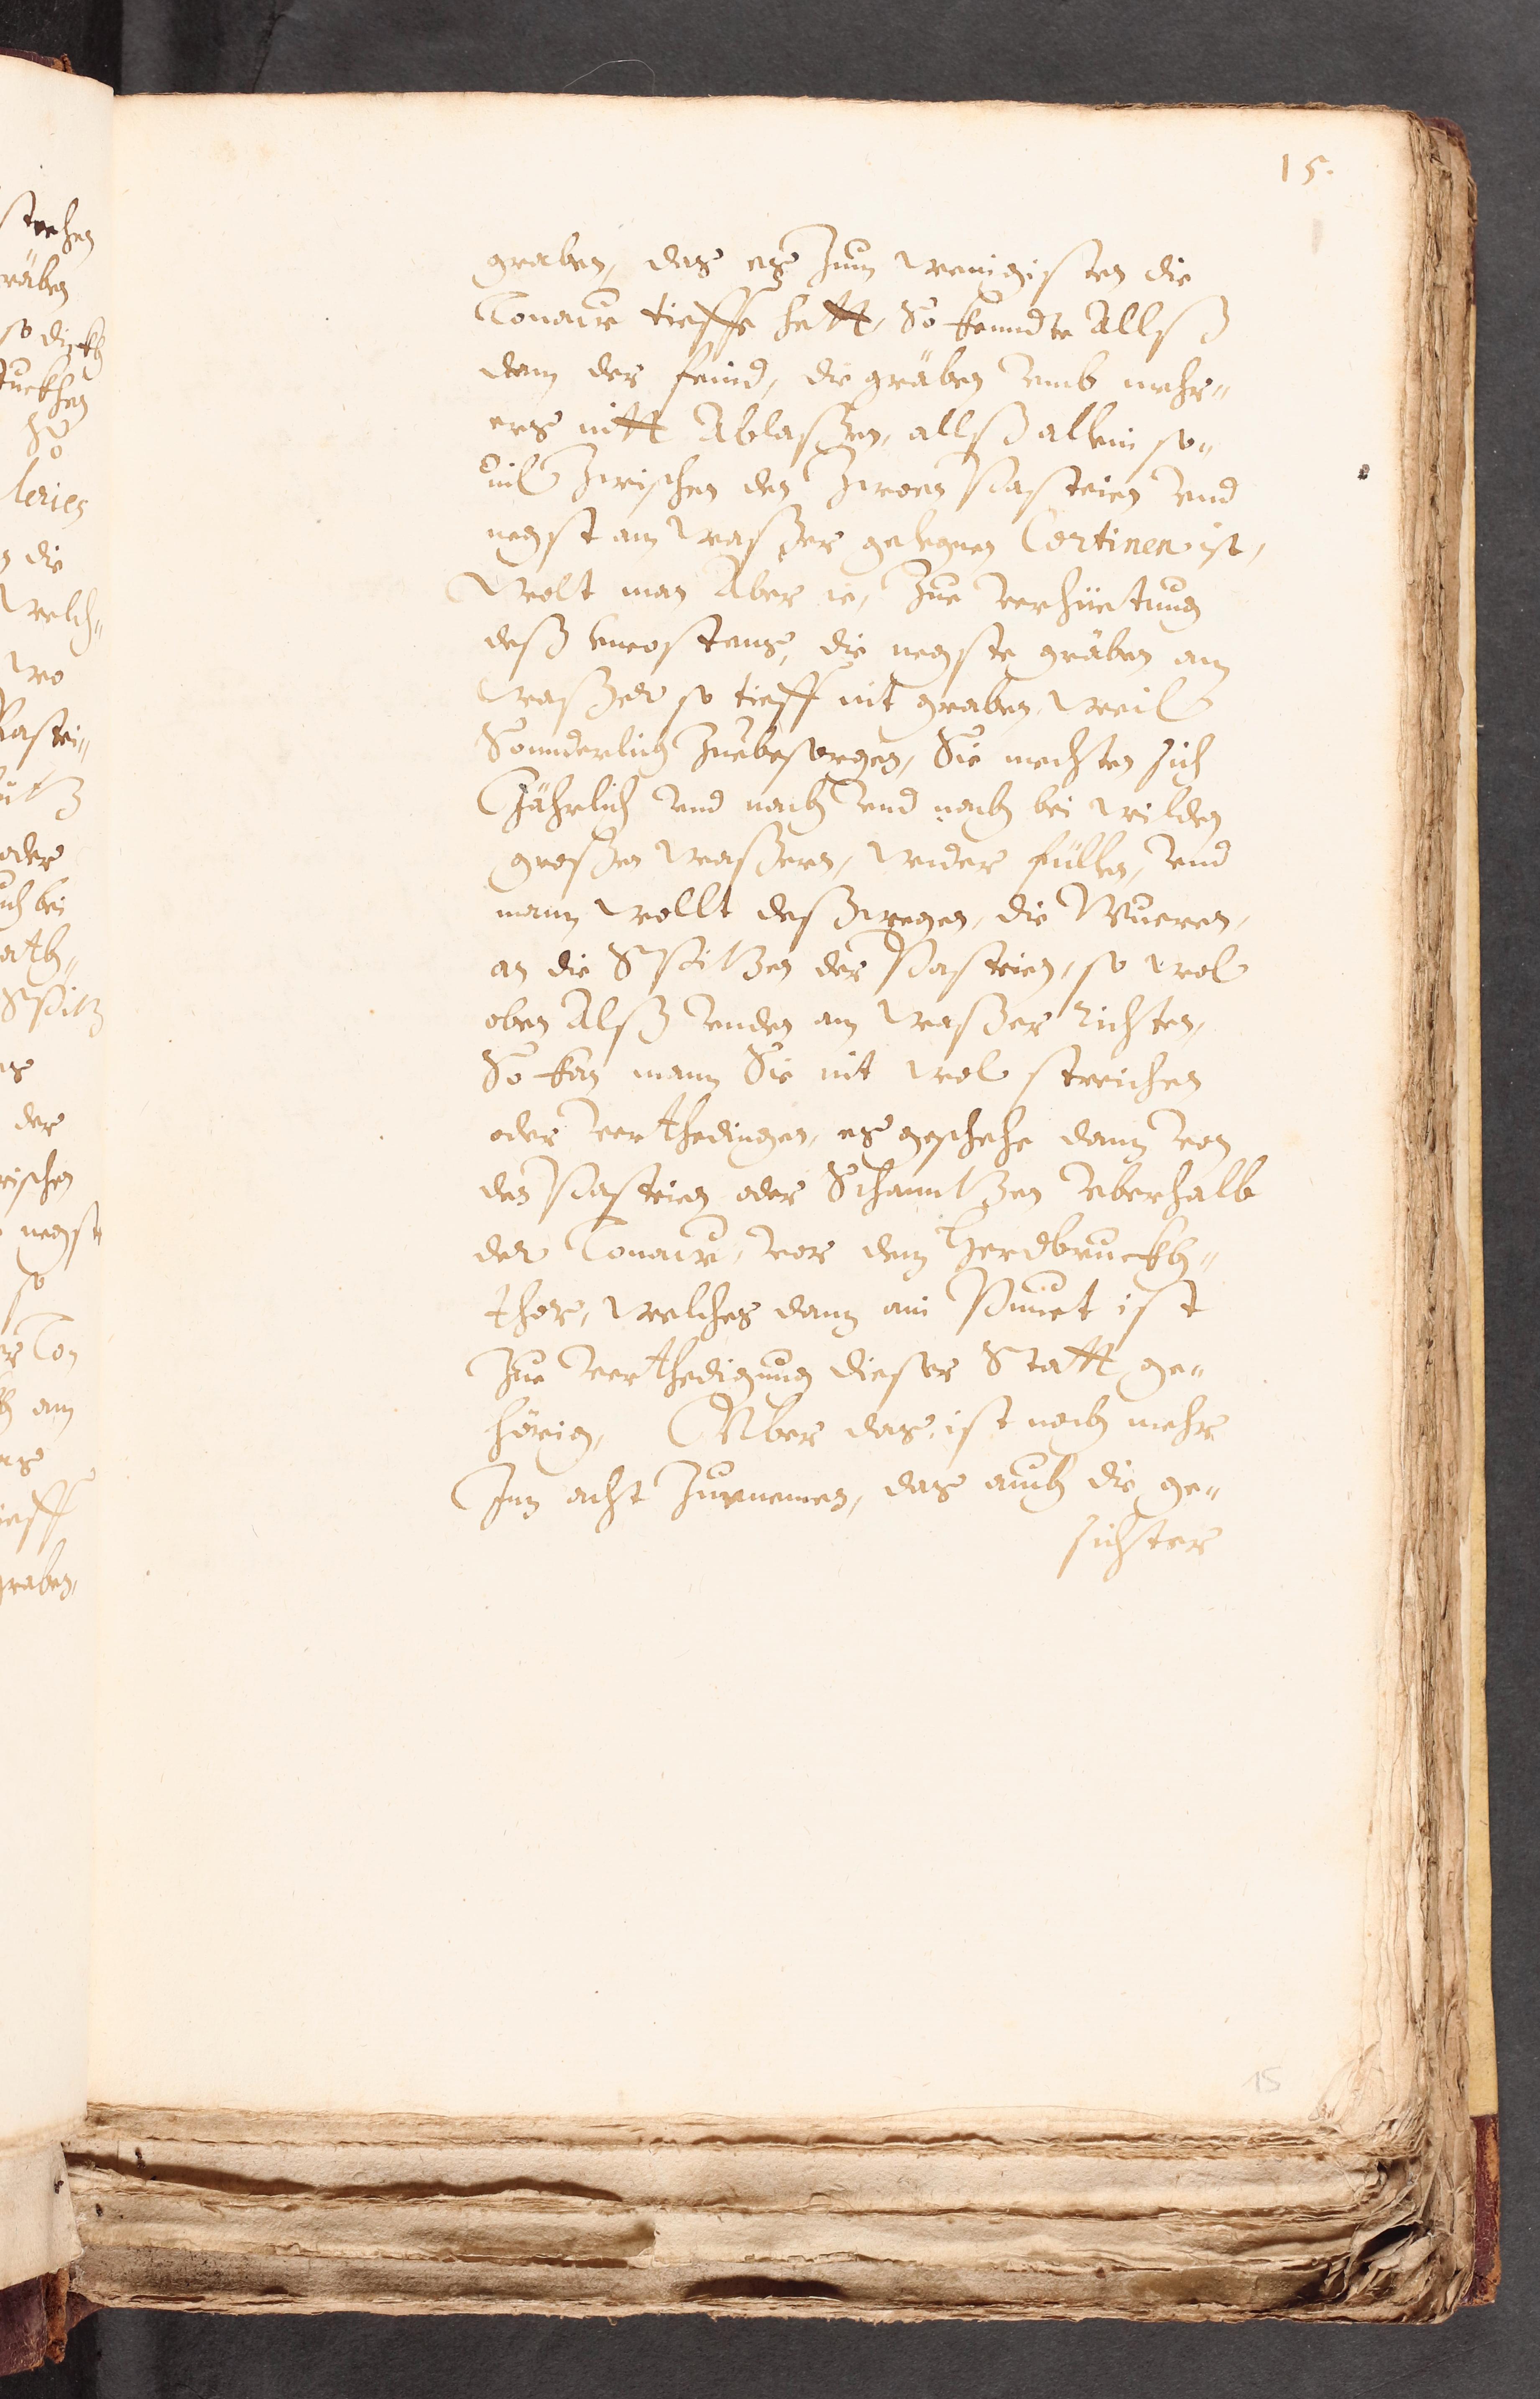 15.
graben, das es Zum wenigisten die
Tonaw tieffe hett, So kenndte Allß
dann der feind, die gräben vmb mehr„
ers nitt Ablaßen, allß allein so„
uil Zwischen den Zwoen Pasteien vnd
negst am waßer gelegnen Cortinen ist,
Wolt man Aber ie, Zue verhüettung
deß vncostens, die negste gräben am
waßer so tieff nit graben, weil
Sonnderlich Zuebesorgen, Sie mechten sich
Jährlich vnd nach vnd nach bei wilden
großen waßern, wider füllen, vnd
mann wollt deßwegen, die Wueren,
an die Spitzen der Pasteien, so wol
oben Alß vnden am waßer richten,
So kan mann Sie nit wol streichen
oder verthedingen, es geschehe dann von
den Pasteien oder Schanntzen vberhalb
der Tonaw, vor dem Herdbruckh„
thor, welches dann ain Punct ist
Zue verthedigung dieser Statt ge„
hörig, Aber das ist noch mehr
Inn acht Zuenemen, das auch die ge„
sichter
15